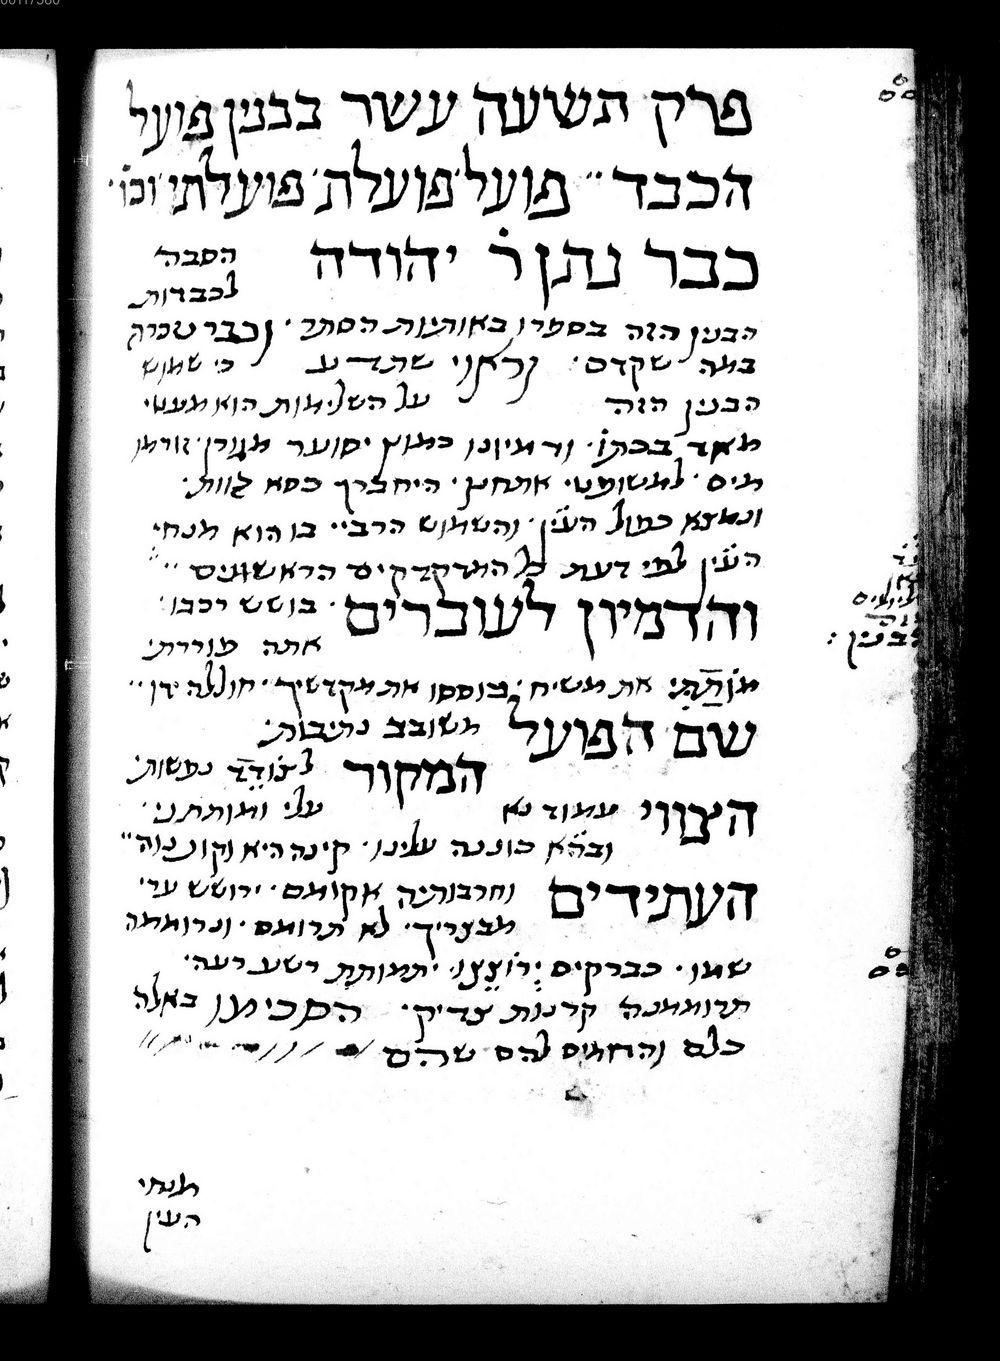 פרק תשעה עשר בבנין פועל
הכבד פועל פועלת פועלתי וכו'
כבר נתן ר' יהודה הסבה
לכבדות
הבנין הזה בספרו באותיות הסתר וכבר
במה שקדם וראוי שתדע כי שמוש
הבנין הזה על השלימות הוא מעטי
מאד בכתו' ודמיונו כמוץ יסוער מגורן זורמו
מים למשופטי אתחנן היחברך כסא הוות
ונמצא כפול העין והשמוש הרביי בו הוא מנחי
העין לפי דעת כל המדקדקים הראשונים
והדמיון לעוברים בושש רכבו
אתה פוררת
מותתי את משיח בוססו את מקדשיך חוללה ידו
שם הפועל משובב נתיבות
המקור לצודד נפשות
הצווי עמוד נא עלי ומותתני
ובהא כוננה עלינו קינה היא וקוננוה
העתידים וחרבותיה אקומם ירושש ערי
מבצריך לא תרומם ונרוממה
שמו כברקים ירוצצו תמותת רשע רעה
תרוממנה קרנות צדיק הסכימו באלה
כלם והדומים להם שהם
מנחי
העין